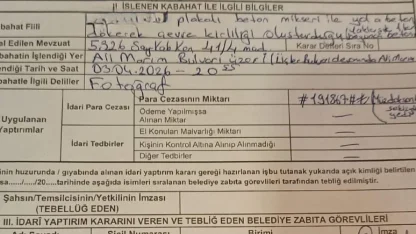 II İŞLENEN KABAHAT İLE İLGİLİ BİLGİLER
abahat Fiili plakalı beton mikseri ile yola beton
dökerek çevre kirliliği oluşturduğu
lal Edilen Mevzuat 5326 Say Kab Kan 41/4 mad Karar Defteri Sıra No
abahatin İşlendiği Yer Bulvarı üzeri
lendiği Tarih ve Saat 03.04.2026 - 20 55
abahatle İlgili Deliller Fotoğraf
Para Cezasının Miktarı
İdari Para Cezası Ödeme Yapılmışsa Alınan Miktar
Uygulanan El Konulan Malvarlığı Miktarı
Yaptırımlar İdari Tedbirler Kişinin Kontrol Altına Alınıp Alınmadığı
Diğer Tedbirler
nin huzurunda / gıyabında alınan idari yaptırım kararı gereği hazırlanan işbu tutanak yukarıda açık kimliği belirtilen
sa ...../...../20..... tarihinde aşağıda isimleri sıralanan belediye zabıta görevlileri tarafından tebliğ edilmiştir.
Şahsın/Temsilcisinin/Yetkilinin İmzası
(TEBELLÜĞ EDEN)
III. İDARİ YAPTIRIM KARARINI VEREN VE TEBLİĞ EDEN BELEDİYE ZABITA GÖREVLİLERİ
Adı Soyadı Sicil Numarası Birimi İmza